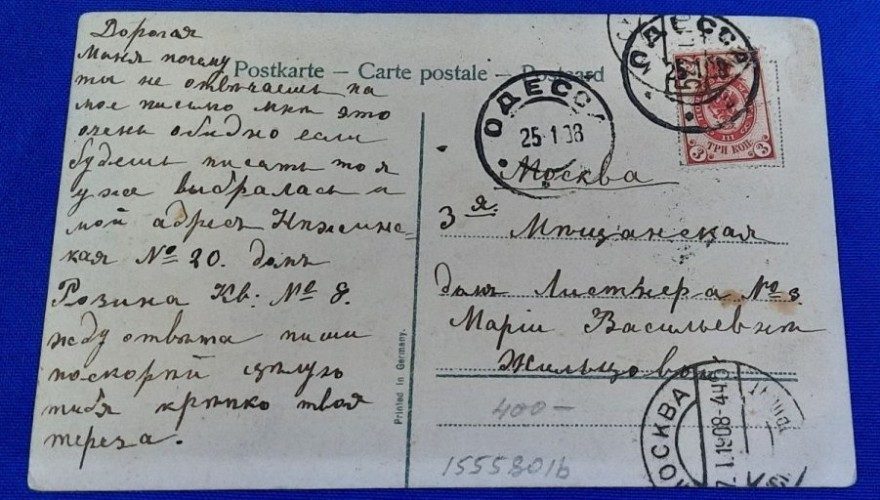 Дорогая
Маня почему
ты не отвѣчаешь на
мое письмо мнѣ это
очень обидно если
будешь писать то я
уже выбралась а
мой адресъ Нѣжинс-
кая № 20. домъ
Розина Кв: № 8.
жду отвѣта пиши
поскорѣй цѣлую
тибя крѣпко твоя
тереза.
Postkarte – Carte postale – Postcard
ОДЕССА
25.1.08
ОДЕССА
25 1 08
3
ТРИ КОП.
3
Москва
3 я Мѣщанская
домъ Листнера № 8.
Маріи Васильевнѣ
Жильцовой
Printed in Germany.
400–
1555801b
МОСКВА
1.1908